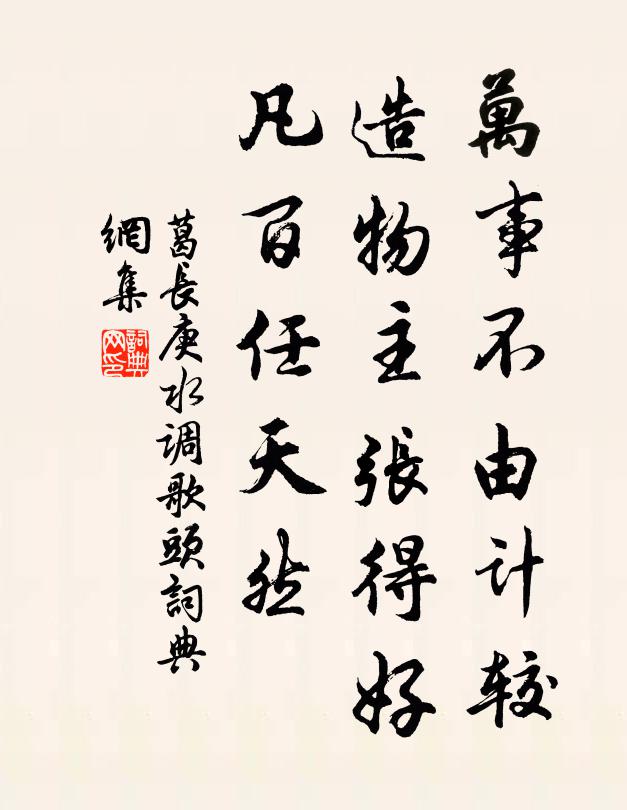 萬事不由计较
造物主張得好
凡百任天然
葛長庚水调歌頭詞典
網集
詞典
网印